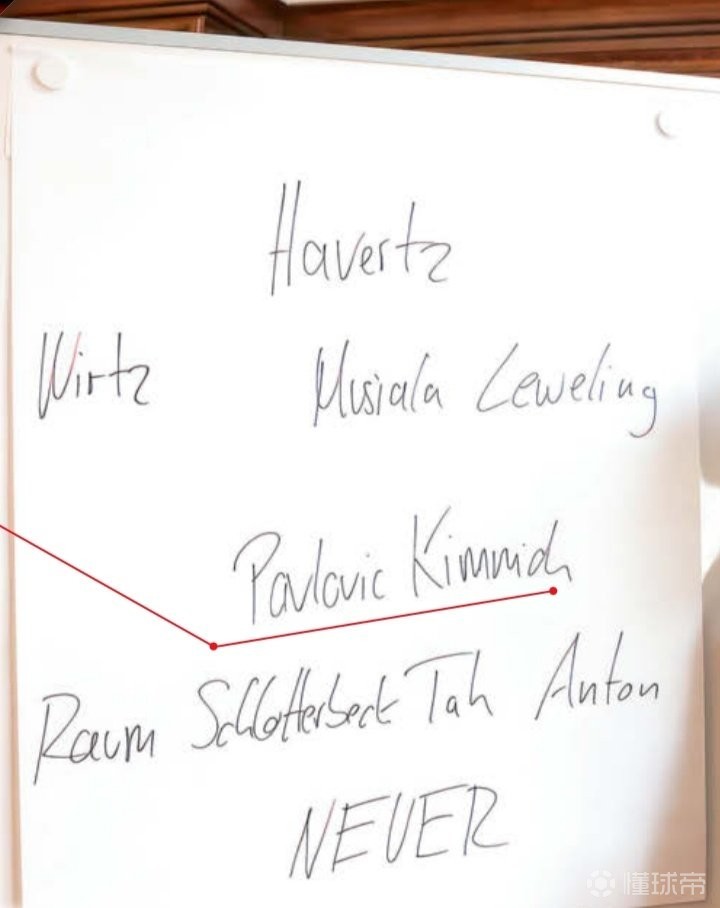 Havertz
Wirtz Musiala Leweling
Pavlovic Kimmich
Raum Schlotterbeck Tah Anton
NEUER
懂球帝